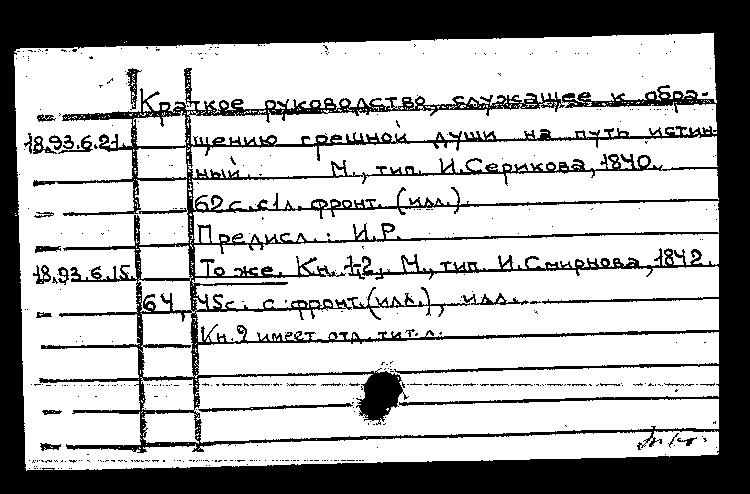 Краткое руководство, служащее к обра-
18.93.6.21. щению грешной души на путь истин-
ный. М., тип. И.Серикова, 1840.
62с. с 1л. фронт. (илл.).
Предисл.: И.Р.
18.93.6.15. То же. Кн. 1,2. М., тип. И.Смирнова, 1842.
64, 45с. с фронт.(илл.), илл.
Кн.2 имеет отд. тит. л.